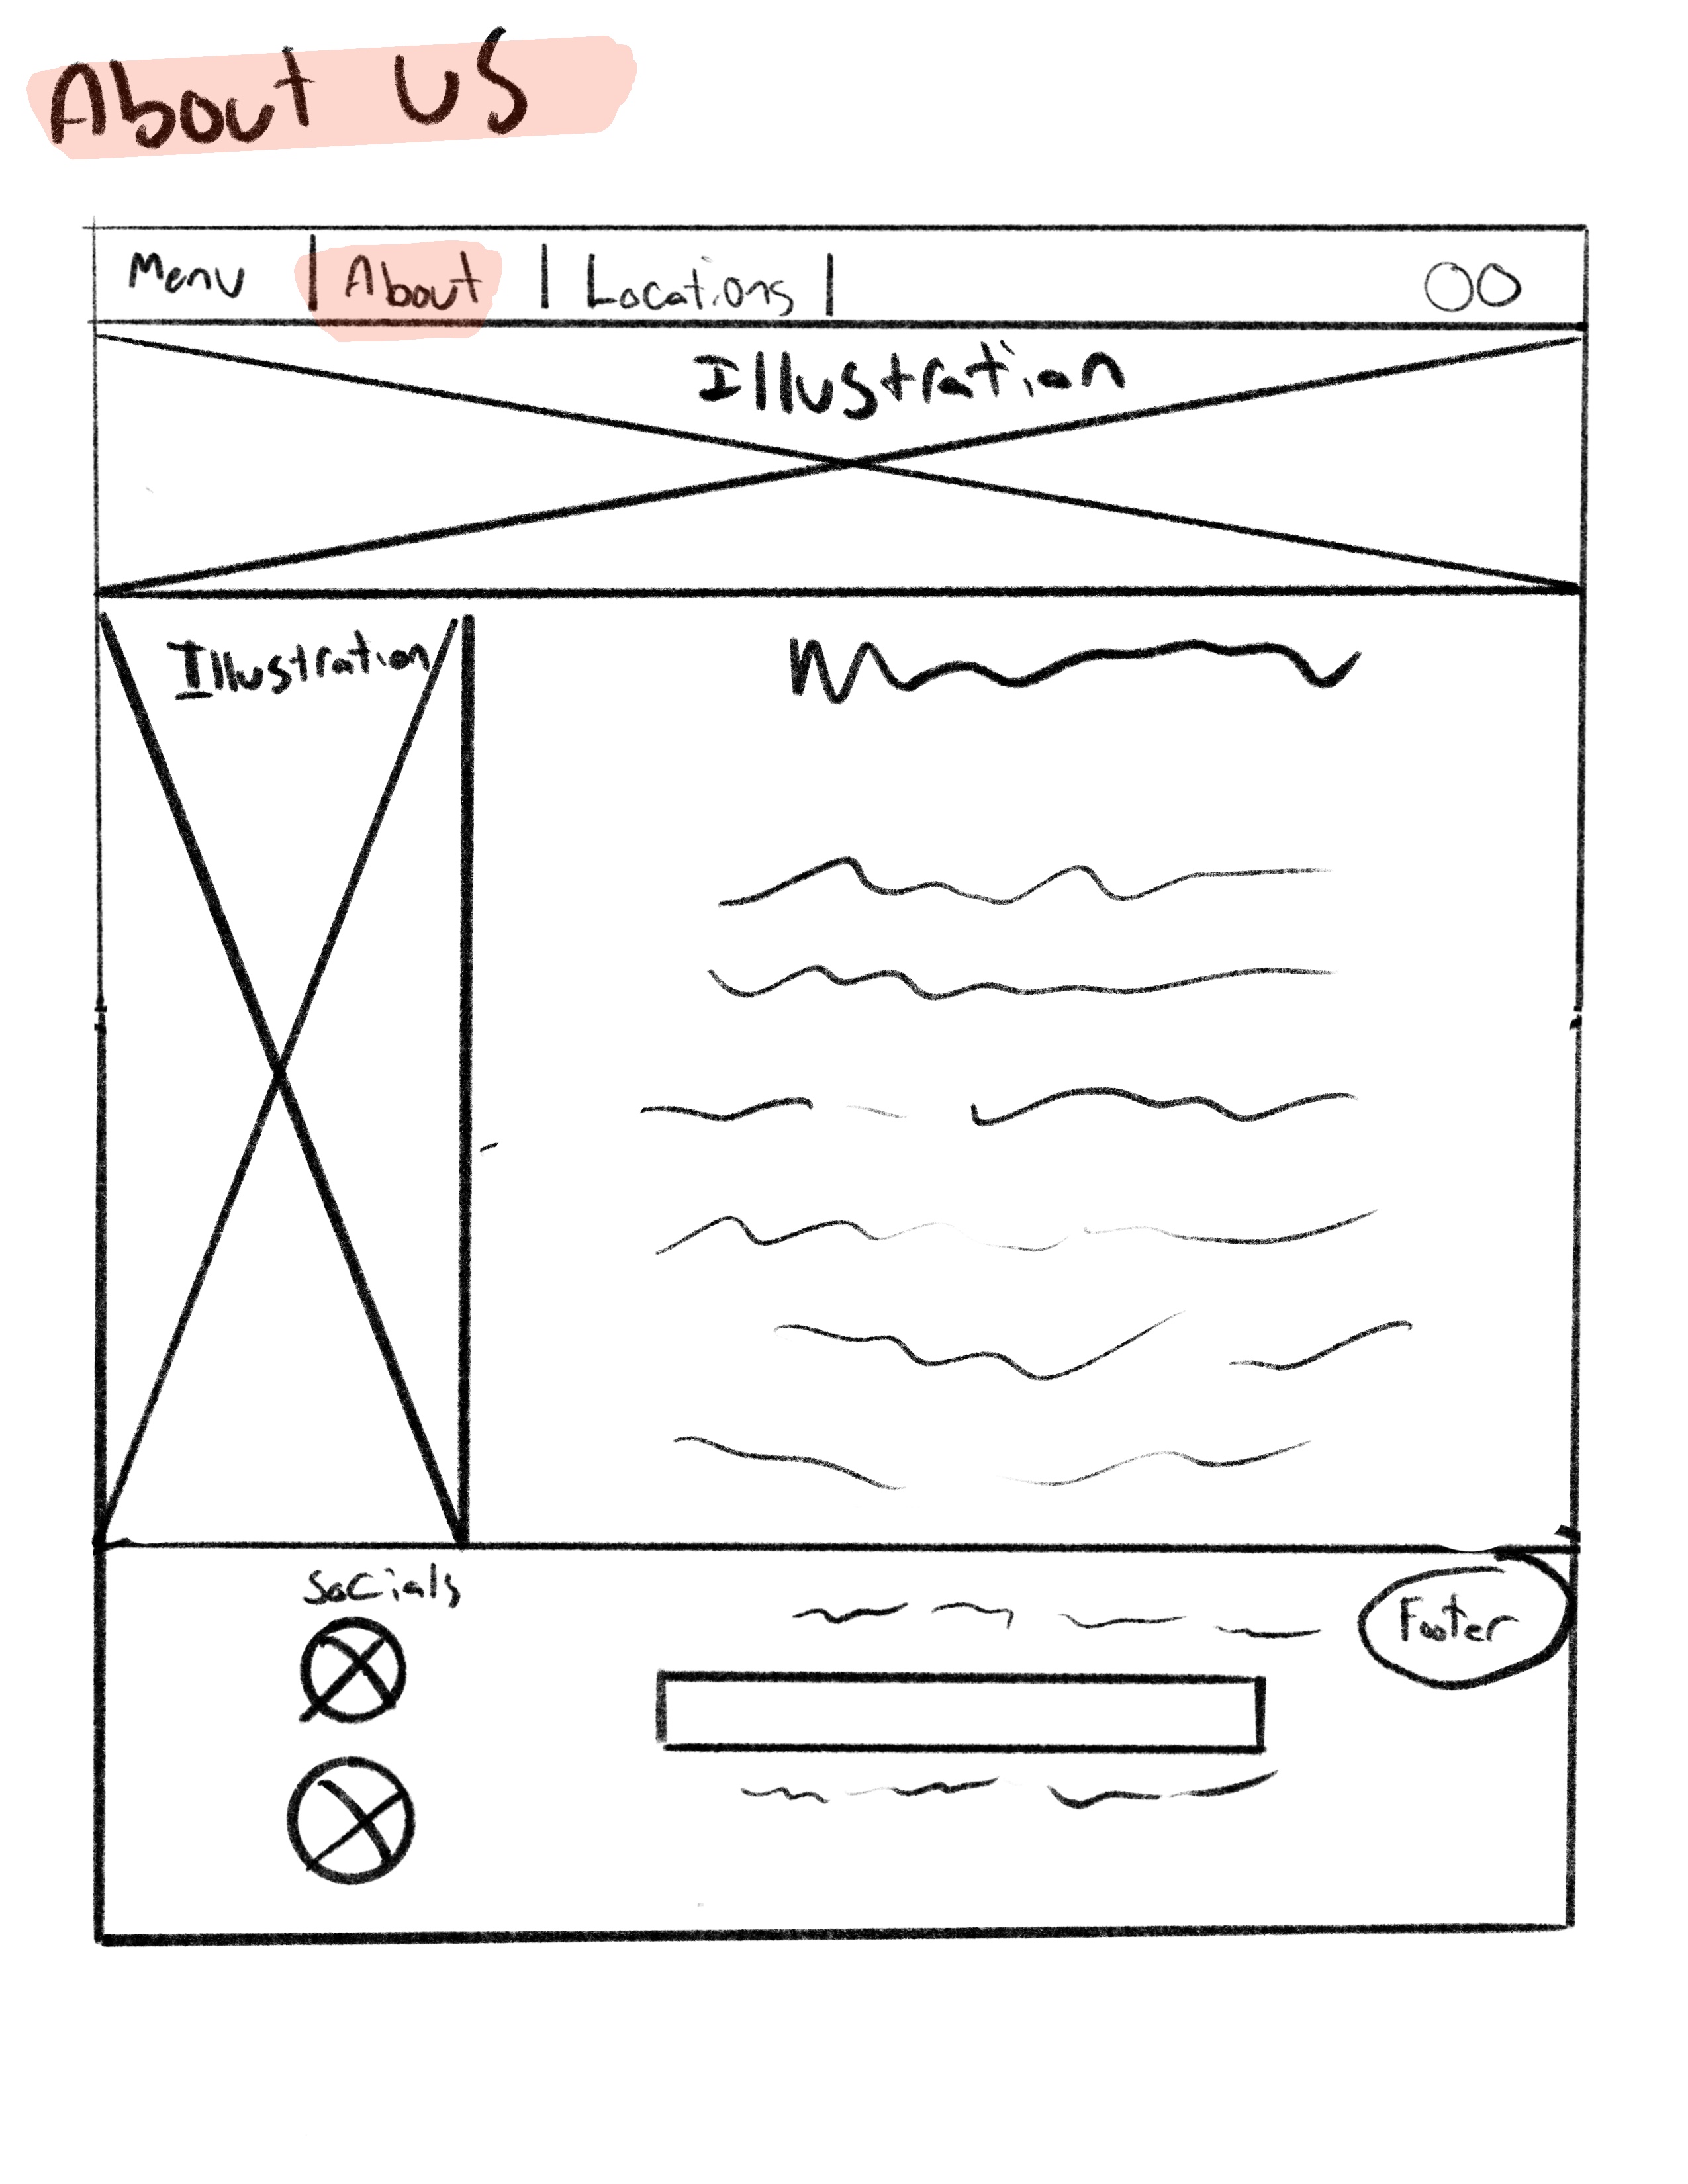 About US
Menu | About | Locations |
Illustration
Illustration
Socials
Footer